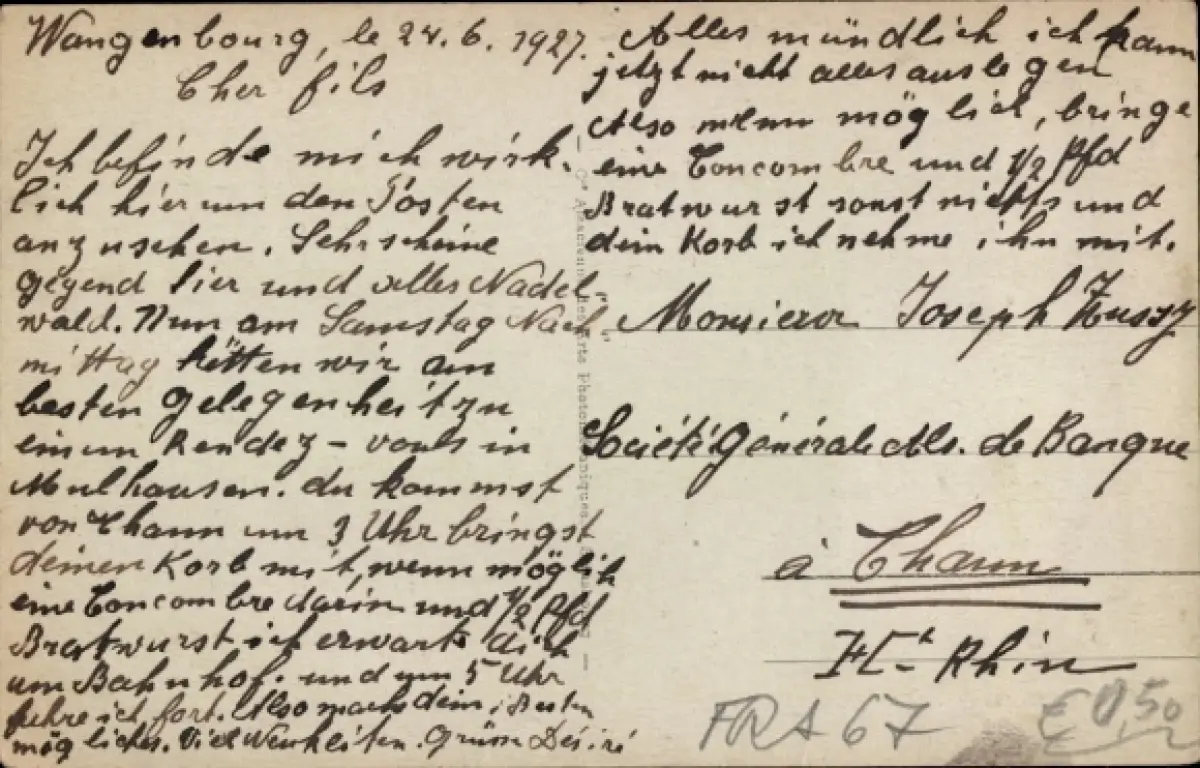 Wangenbourg, le 24.6.1927.
Cher fils
Ich befinde mich wirk-
lich hier um den Posten
anzusehen. Sehr scheine
gegend hier und alles Nadel-
wald. Nun am Samstag Nach-
mittag hätten wir am
besten gelegenheit zu
einem Rendez-vous in
Mulhausen. du kommst
von Thann um 3 Uhr bringst
deinen Korb mit, wenn möglich
eine Concombre darin und 1/2 Pfd
Bratwurst ich erwarte dich
am Bahnhof. und um 5 Uhr
fahre ich fort. Also mach dein Besten
mögliches. Viel Neuheiten. Grüsse Désiré
Alles mündlich ich kann
jetzt nicht alles auslegen
Also wenn möglich, bringe
eine Concombre und 1/2 Pfd
Bratwurst sonst nichts und
dein Korb ich nehme ihn mit.
Monsieur Joseph
Société Générale Als. de Banque
à Thann
Ht Rhin
FRA 67 € 0,50